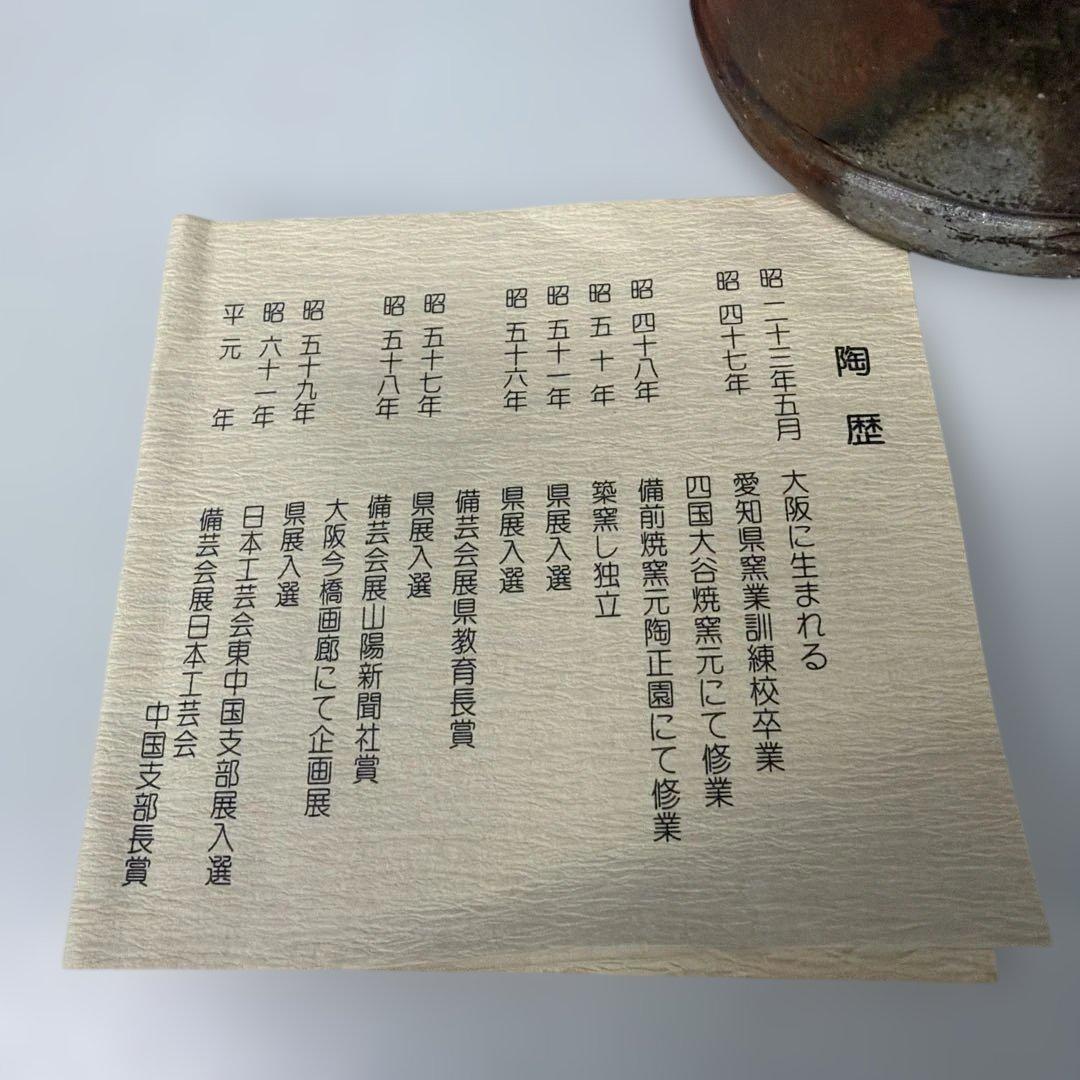 陶歴
昭二十三年五月 大阪に生まれる
昭四十七年 愛知県窯業訓練校卒業
四国大谷焼窯元にて修業
昭四十八年 備前焼窯元陶正園にて修業
昭五十年 築窯し独立
昭五十一年 県展入選
昭五十六年 県展入選
備芸会展県教育長賞
昭五十七年 県展入選
昭五十八年 備芸会展山陽新聞社賞
大阪今橋画廊にて企画展
昭五十九年 県展入選
昭六十一年 日本工芸会東中国支部展入選
平元年 備芸会展日本工芸会
中国支部長賞